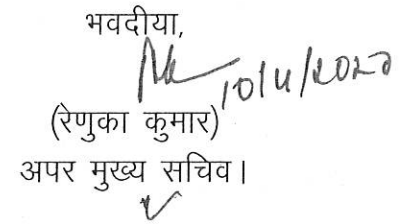 भवदीया,
10/4/2020
(रेणुका कुमार)
अपर मुख्य सचिव।